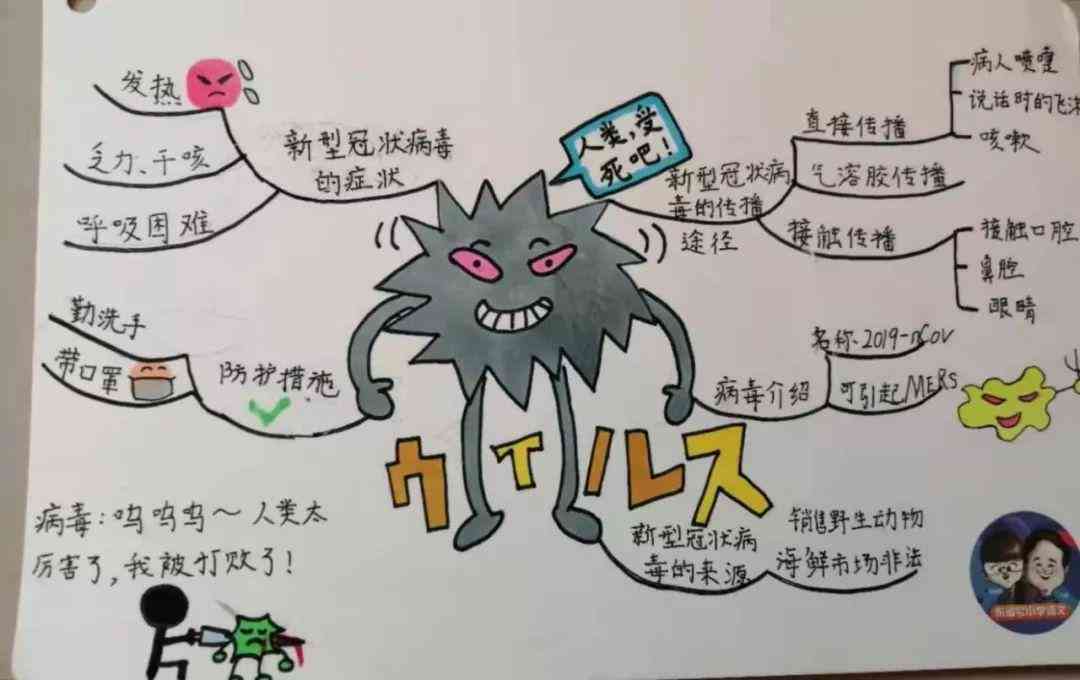 发热
乏力、干咳
呼吸困难
新型冠状病毒
的症状
人类,受
死吧!
新型冠状病
毒的传播
途径
直接传播
病人喷嚏
说话时的飞沫
咳嗽
气溶胶传播
接触传播
接触口腔
鼻腔
眼睛
勤洗手
带口罩
防护措施
病毒介绍
名称·2019-nCov
可引起MERS
ウイルス
新型冠状病
毒的来源
销售野生动物
海鲜市场非法
病毒:呜呜呜~人类太
厉害了,我被打败了!